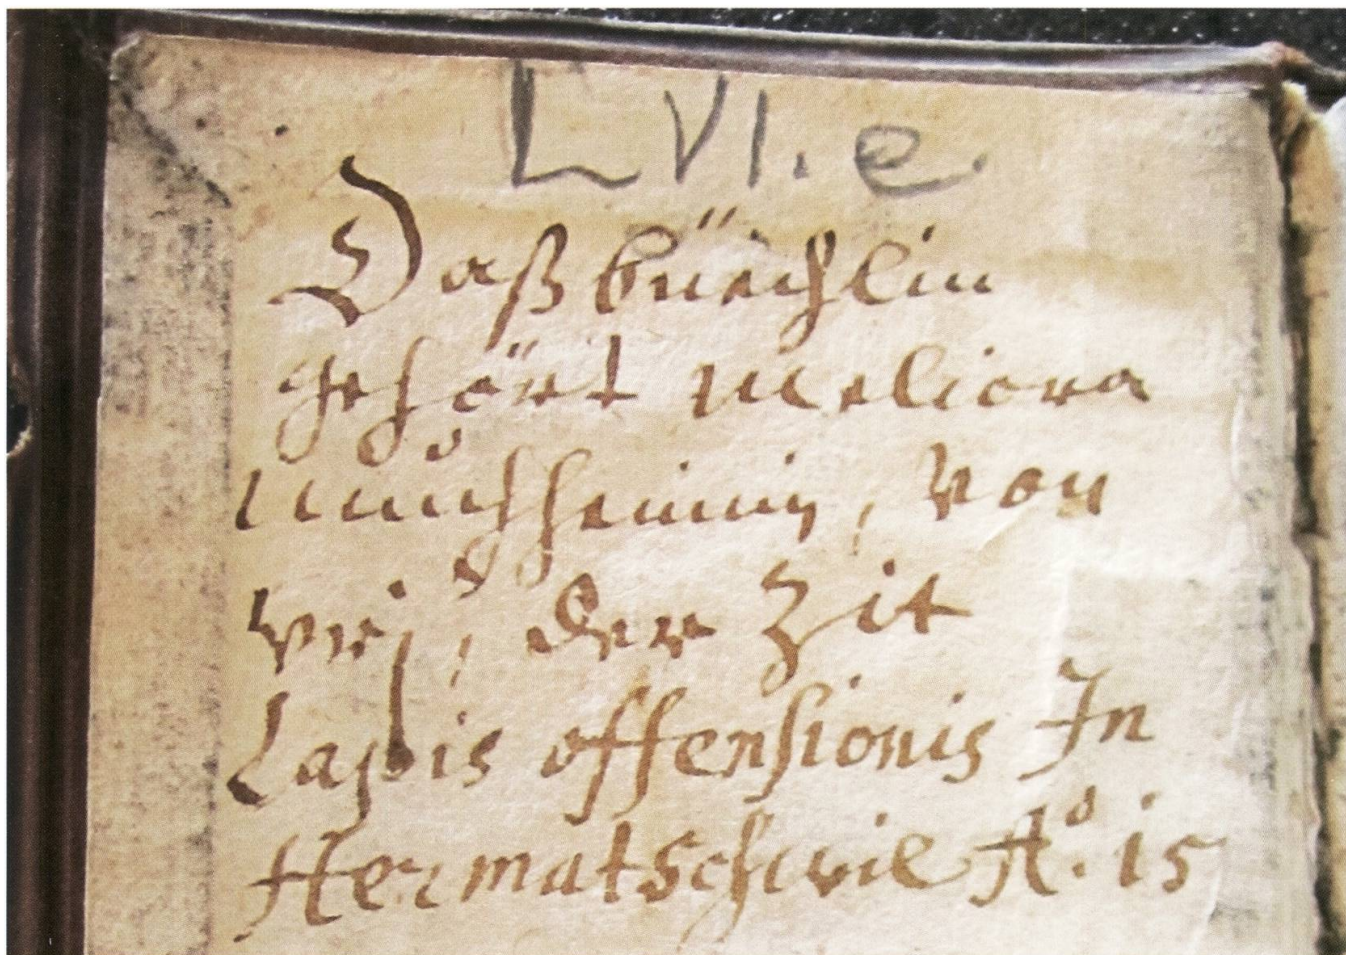 LVI. e.
Daß büechlin
gehört Meliora
Muchheimin, von
Vrj, der Zit
Lapis offensionis In
Hermatschwil Aº. 15